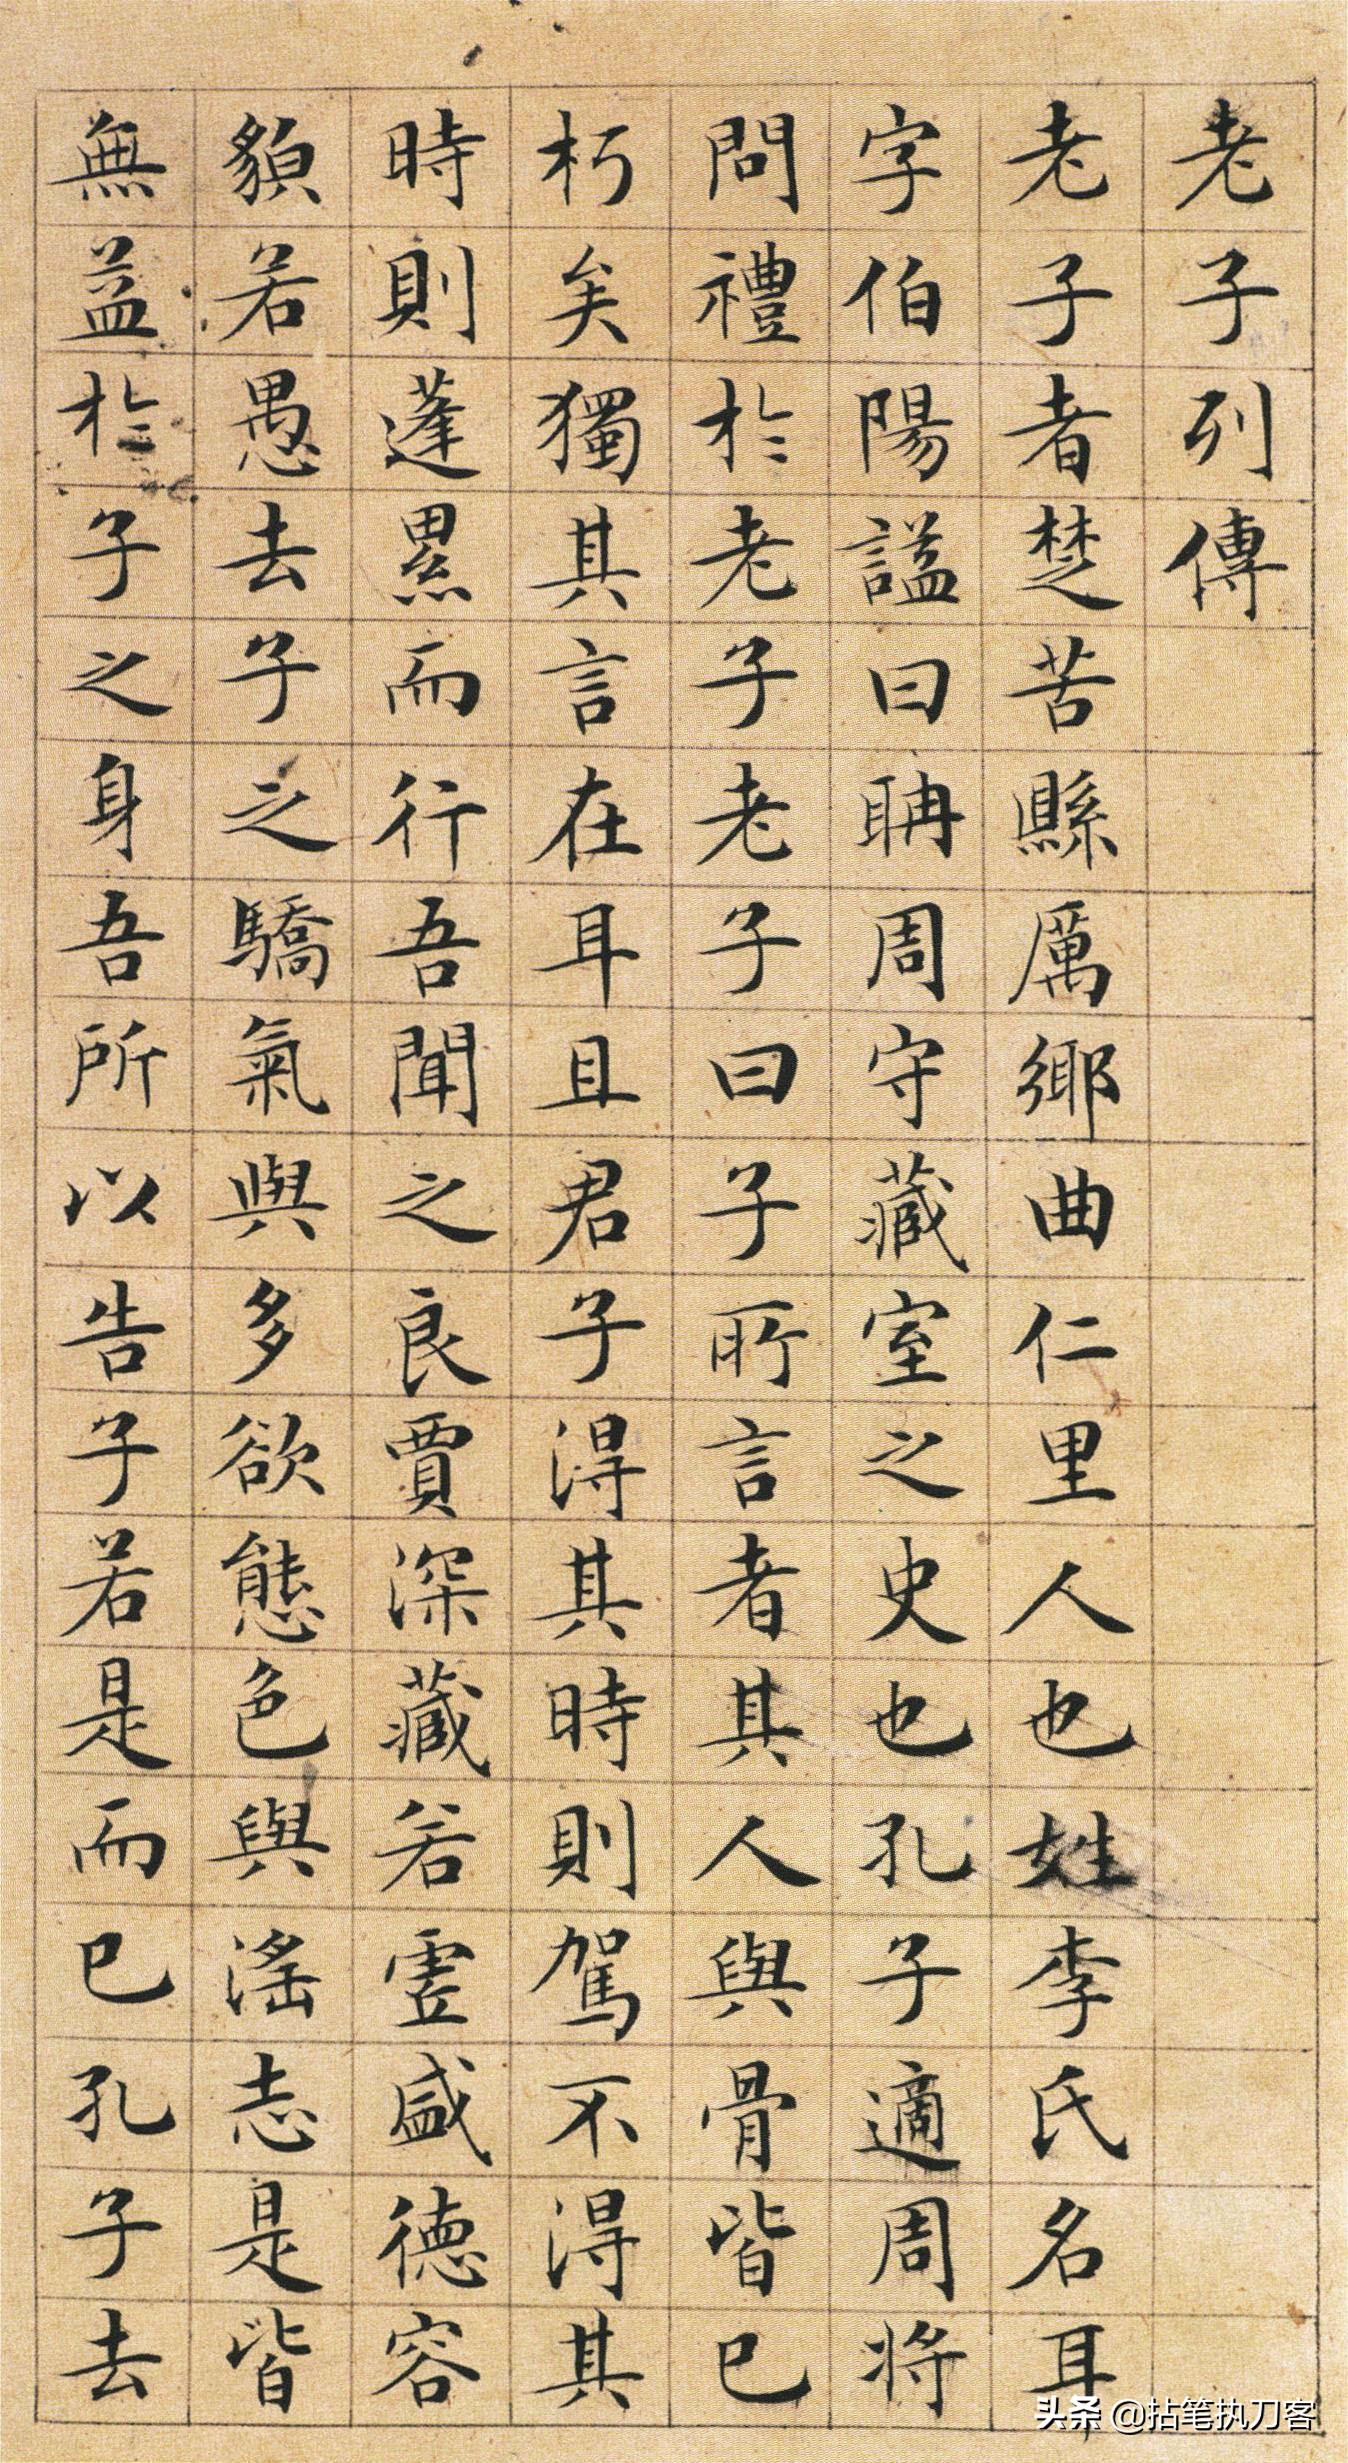 老子列傳
老子者楚苦縣厲鄉曲仁里人也姓李氏名耳
字伯陽謚曰聃周守藏室之史也孔子適周將
問禮於老子老子曰子所言者其人與骨皆已
朽矣獨其言在耳且君子得其時則駕不得其
時則蓬累而行吾聞之良賈深藏若虛盛德容
貌若愚去子之驕氣與多欲態色與滛志是皆
無益於子之身吾所以告子若是而已孔子去
头条 @拈笔执刀客